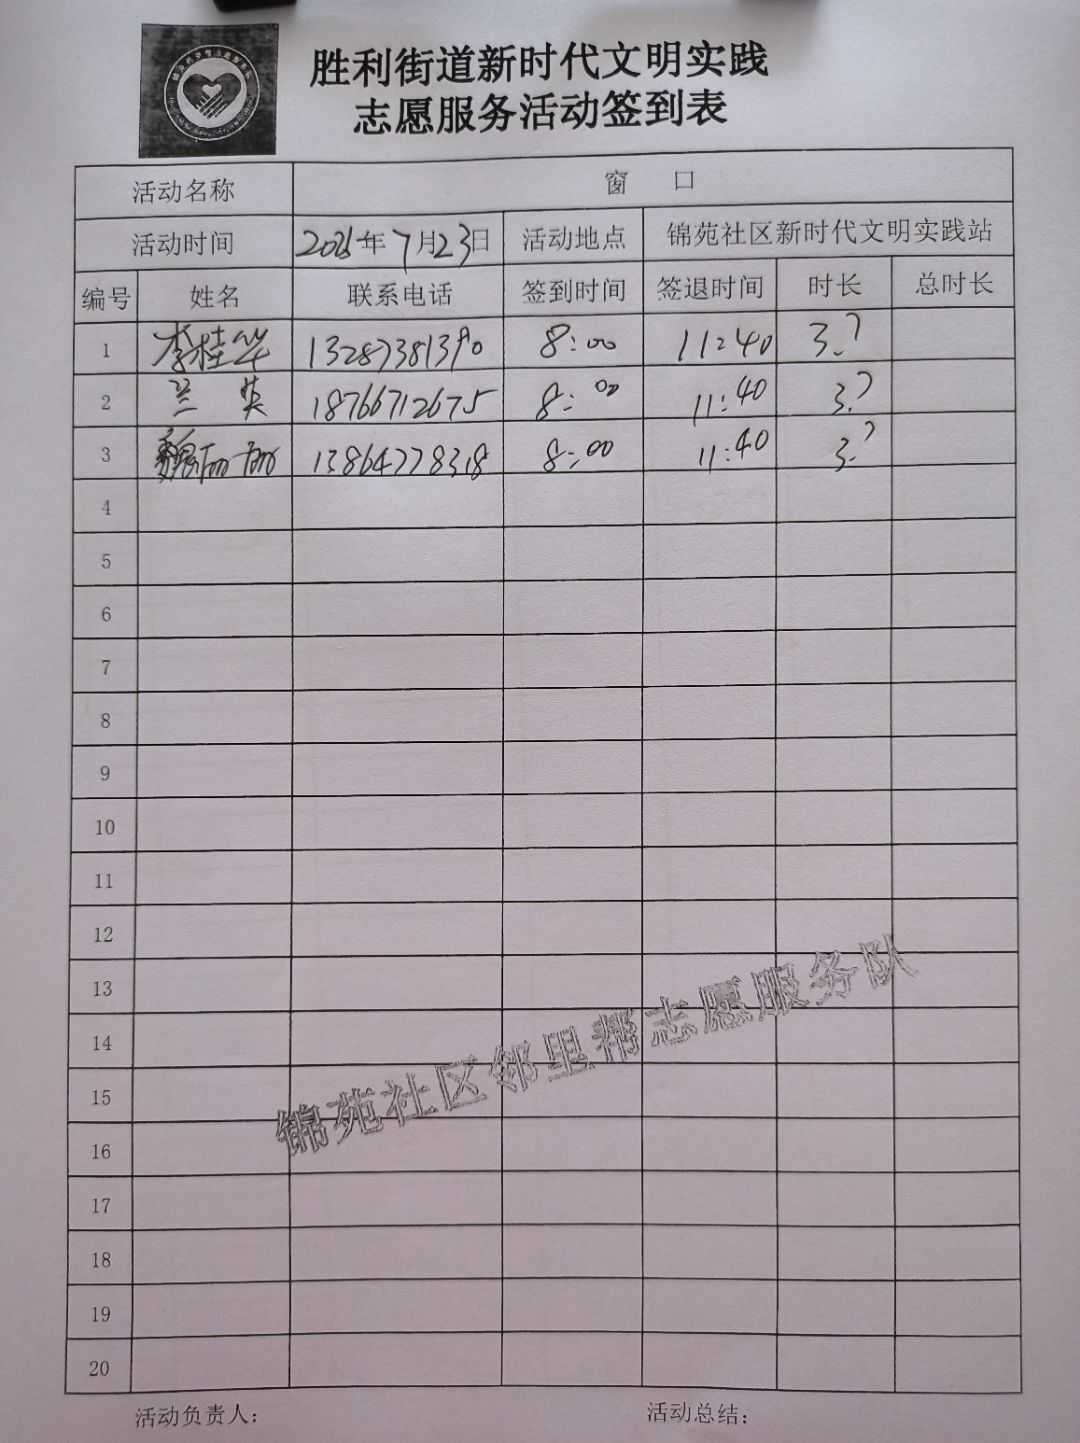 胜利街道新时代文明实践
志愿服务活动签到表
活动名称 窗 口
活动时间 年7月23日 活动地点 锦苑社区新时代文明实践站
编号 姓名 联系电话 签到时间 签退时间 时长 总时长
1 李桂华 13287381390 8:00 11:40 3.7
2 兰英 18766712675 8:00 11:40 3.7
3 魏丽丽 13864778318 8:00 11:40 3.7
4
5
6
7
8
9
10
11
12
13
14
15
16
17
18
19
20
锦苑社区邻里帮志愿服务队
活动负责人: 活动总结: